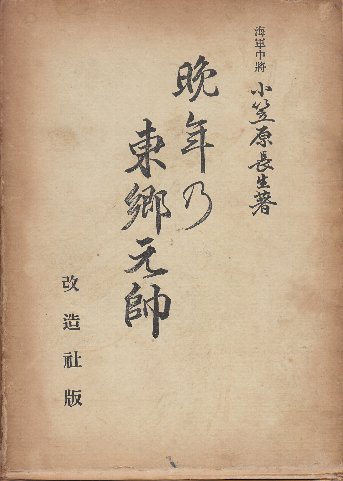 海軍中將 小笠原長生著
晩年乃
東郷元帥
改造社版